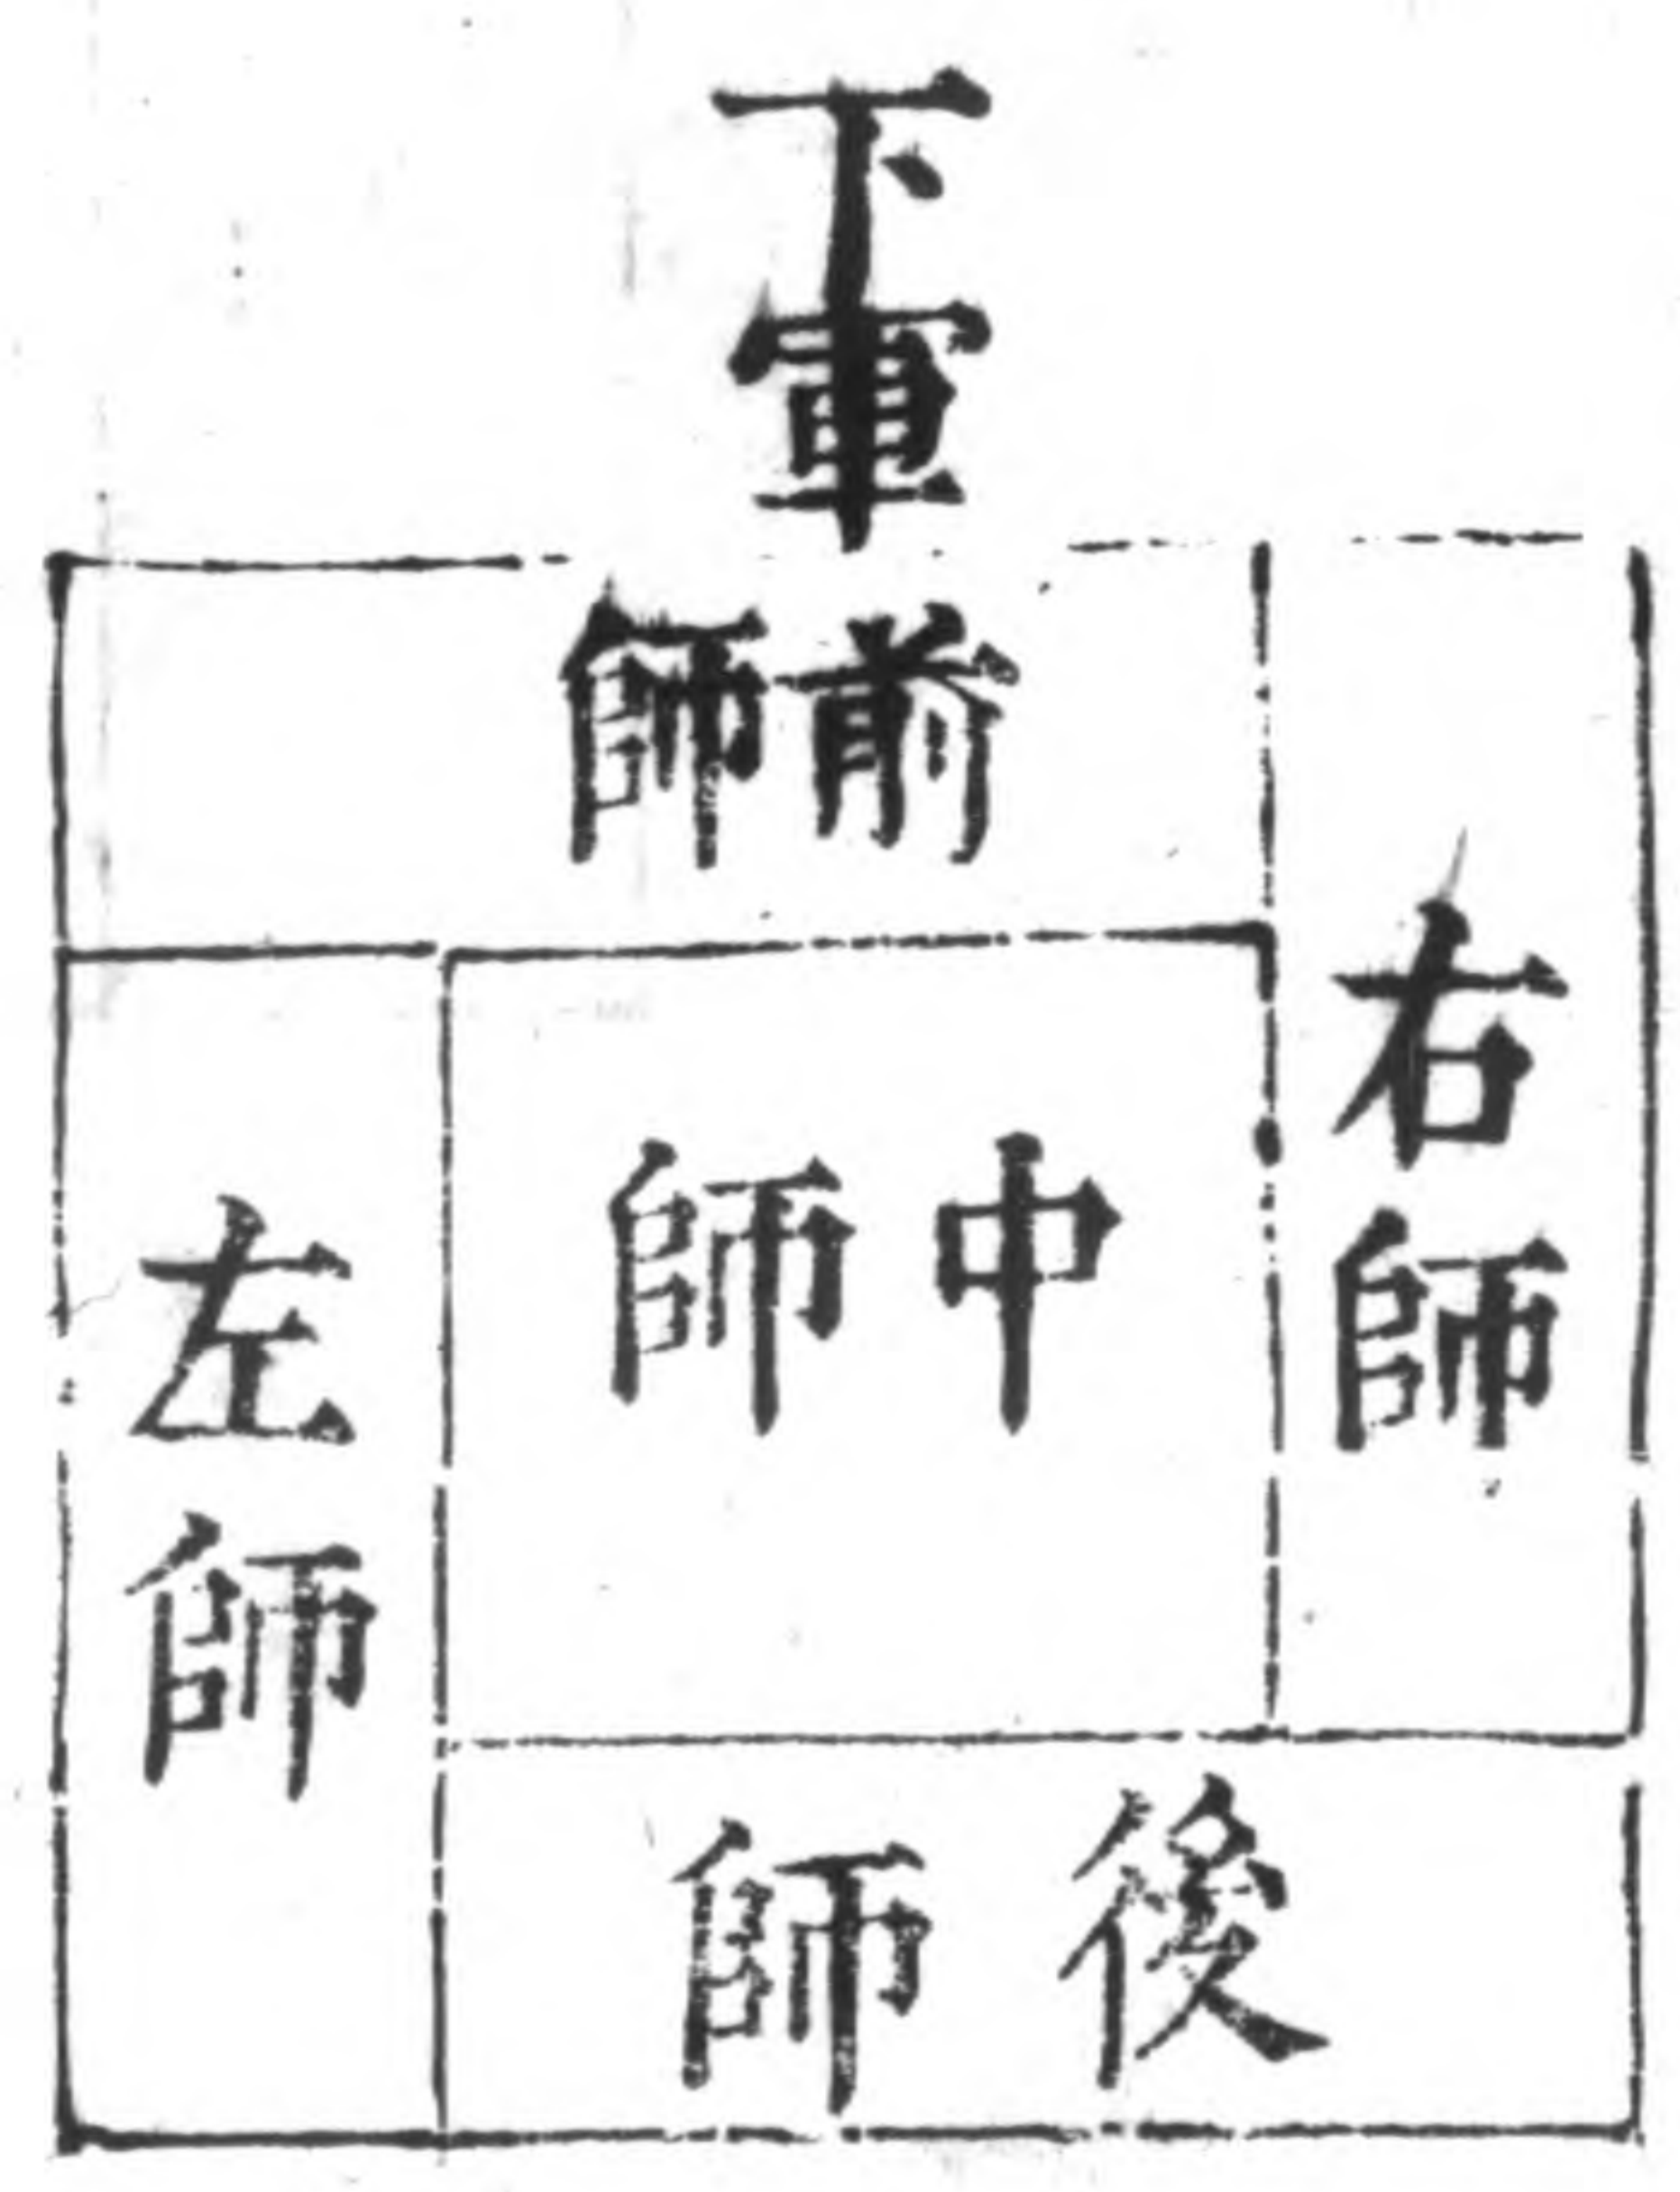 下軍
前師
右師
中師
左師
後師